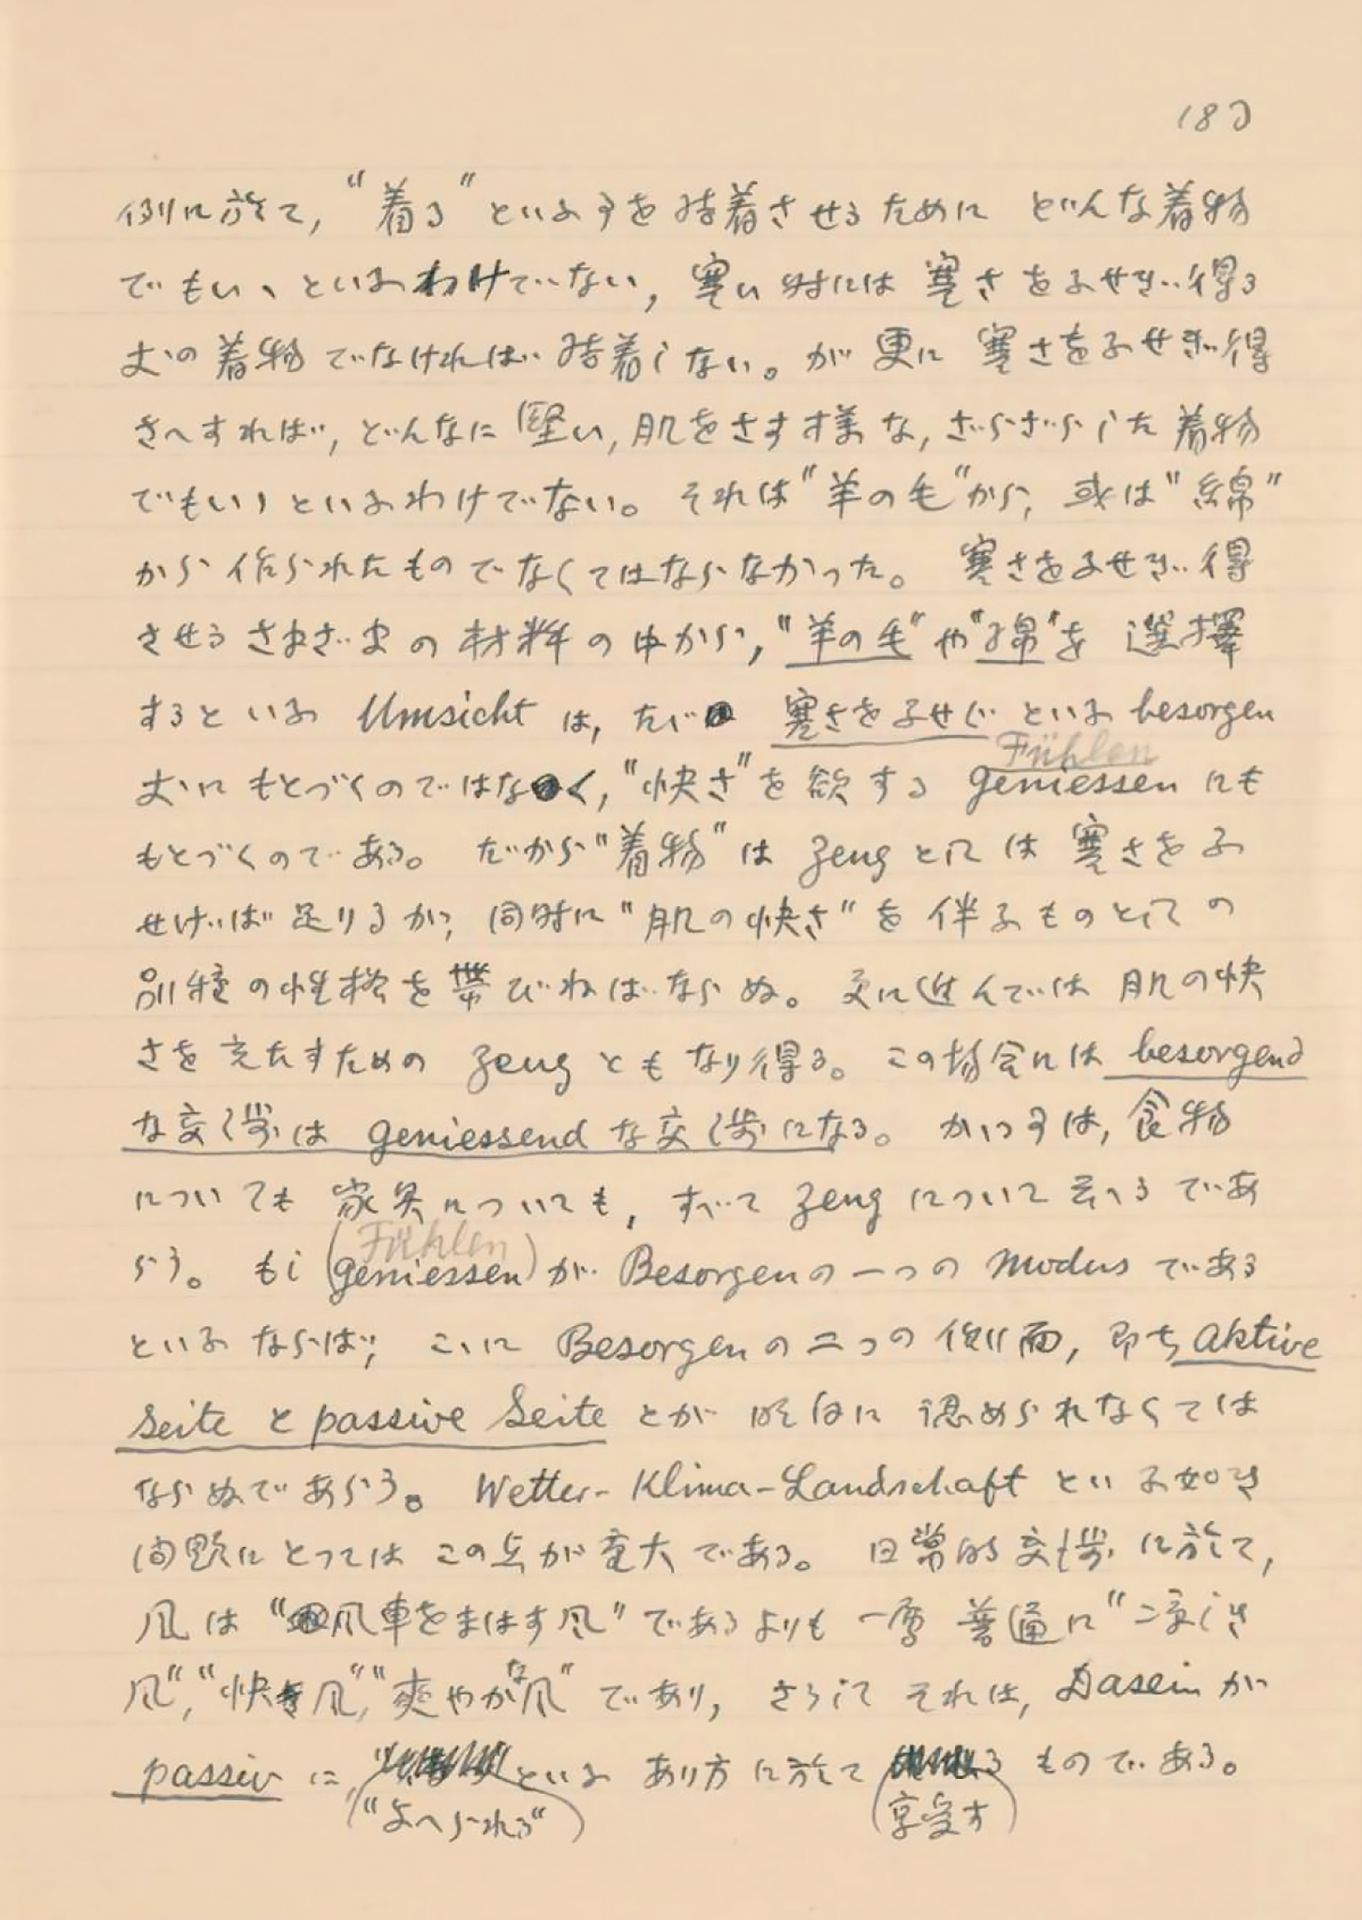 例に於て, "着る" といふ事を結着させるために どんな着物
でもいゝといふわけでない, 寒い時には 寒さをふせぎ得る
丈の着物でなければ結着しない。が更に 寒さをふせぎ得
さへすれば, どんなに堅い, 肌をさす様な, ざらざらした着物
でもいゝといふわけでない。それは"羊の毛"から, 或は"綿"
から作られたものでなくてはならなかった。 寒さをふせぎ得
させるさまざまの材料の中から, "羊の毛"や"綿"を 選擇
するといふ Umsicht は, たゞ 寒さをふせぐといふ besorgen
Fühlen
丈にもとづくのではなく, "快さ"を欲する geniessen にも
もとづくのである。 だから"着物"は Zeug としては寒さをふ
せげば足りるが, 同時に"肌の快さ"を伴ふものとしての
別種の性格を帯びねばならぬ。更に進んでは肌の快
さを充たすための Zeug ともなり得る。この場合には besorgend
な交渉は geniessend な交渉になる。かゝる事は, 食物
についても家具についても, すべて Zeug について云へるであ
Fühlen
らう。もし (geniessen) が Besorgen の一つの Modus である
といふならば, こゝに Besorgen の二つの側面, 即ち aktive
Seite と passive Seite とが明白に認められなくては
ならぬであらう。Wetter-Klima-Landschaft といふ如き
問題にとつてはこの点が重大である。 日常的交渉に於て,
風は "風車をまはす風" であるよりも 一層普通に "涼しき
風", "快き風", "爽やかな風" であり, さうしてそれは, Dasein が
passiv に, といふあり方に於て るものである。
("与へられる") (享受す)